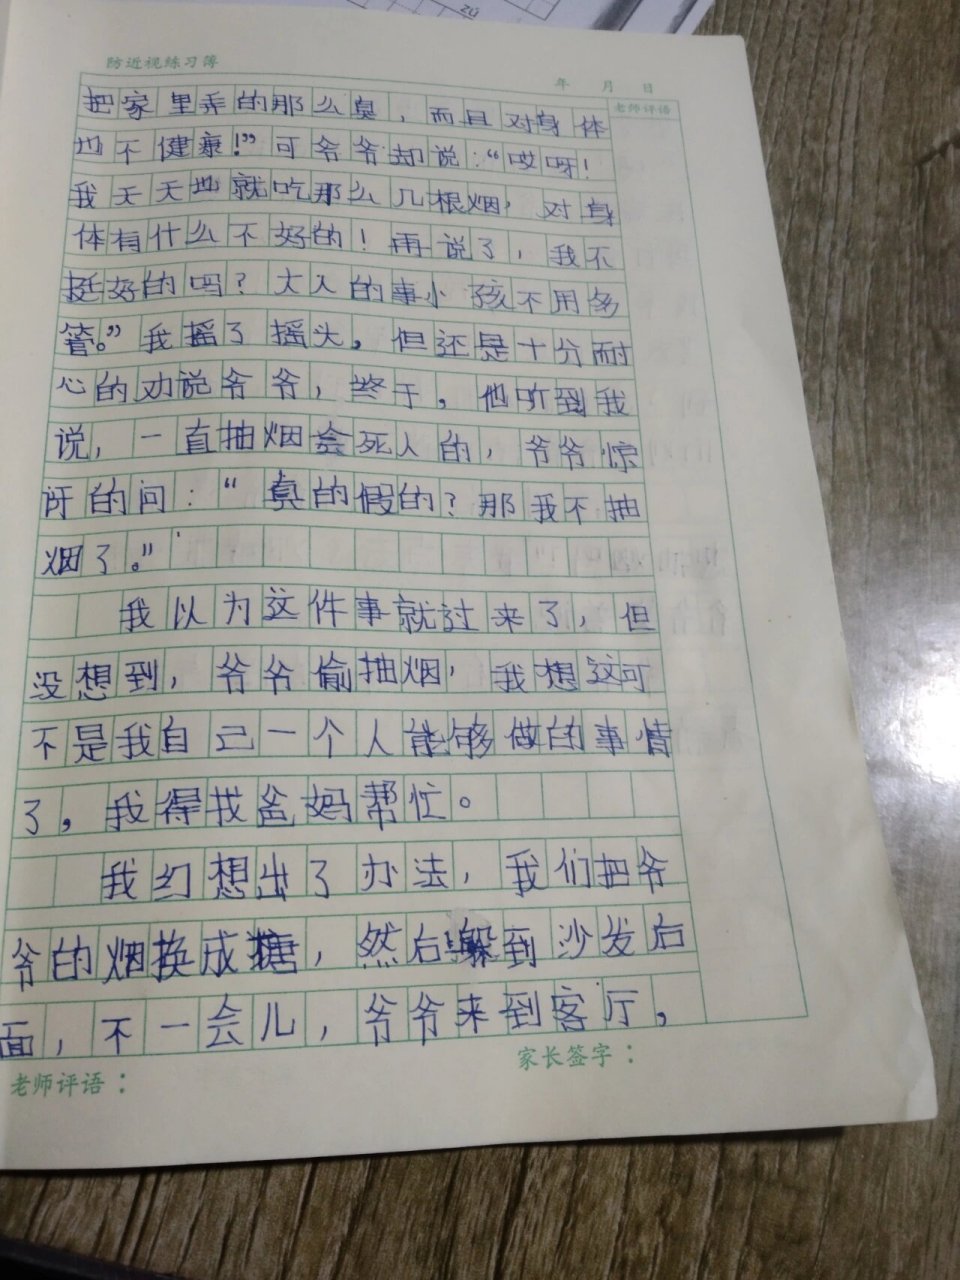 zú
防近视练习簿
年 月 日
老师评语
把家里弄的那么臭，而且对身体
也不健康！”可爷爷却说：“哎呀！
我天天也就吃那么几根烟，对身
体有什么不好的！再说了，我不
挺好的吗？大人的事小孩不用多
管。”我摇了摇头，但还是十分耐
心的劝说爷爷，终于，他听到我
说，一直抽烟会死人的，爷爷惊
讶的问：“真的假的？那我不抽
烟了。”
我以为这件事就过来了，但
没想到，爷爷偷抽烟，我想这可
不是我自己一个人能够做的事情
了，我得找爸妈帮忙。
我们想出了办法，我们把爷
爷的烟换成糖，然后躲到沙发后
面，不一会儿，爷爷来到客厅，
老师评语：
家长签字：